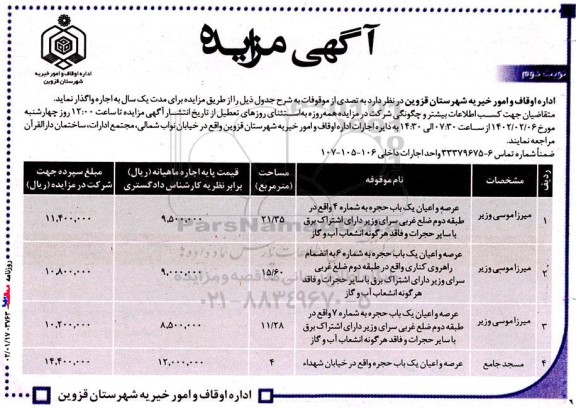 آگهی مزایده
اداره اوقاف و امور خیریه
شهرستان قزوین
نوبت دوم
اداره اوقاف و امور خیریه شهرستان قزوین در نظر دارد به تصدی از موقوفات به شرح جدول ذیل را از طریق مزایده برای مدت یک سال به اجاره واگذار نماید.
متقاضیان جهت کسب اطلاعات بیشتر و چگونگی شرکت در مزایده همه روزه به استثنای روزهای تعطیل از تاریخ انتشار آگهی مزایده تا ساعت ۱۲:۰۰ روز چهارشنبه
مورخ ۱۴۰۲/۰۲/۰۶ از ساعت ۰۷:۳۰ الی ۱۴:۳۰ به دایره اجارات اداره اوقاف و امور خیریه شهرستان قزوین واقع در خیابان نواب شمالی، مجتمع ادارات، ساختمان دارالقرآن
مراجعه نمایند.
ضمناً شماره تماس ۶-۳۳۳۷۹۶۷۵ واحد اجارات داخلی ۱۰۶-۱۰۵-۱۰۷
ردیف
مشخصات
نام موقوفه
مساحت (مترمربع)
قیمت پایه اجاره ماهیانه (ریال) برابر نظریه کارشناس دادگستری
مبلغ سپرده جهت شرکت در مزایده (ریال)
۱
میرزا موسی وزیر
عرصه و اعیان یک باب حجره به شماره ۴ واقع در
طبقه دوم ضلع غربی سرای وزیر دارای اشتراک برق
با سایر حجرات و فاقد هرگونه انشعاب آب و گاز
۲۱/۳۵
۹,۵۰۰,۰۰۰
۱۱,۴۰۰,۰۰۰
۲
میرزا موسی وزیر
عرصه و اعیان یک باب حجره به شماره ۶ به انضمام
راهروی کناری واقع در طبقه دوم ضلع غربی
سرای وزیر دارای اشتراک برق با سایر حجرات و فاقد
هرگونه انشعاب آب و گاز
۱۵/۶۰
۹,۰۰۰,۰۰۰
۱۰,۸۰۰,۰۰۰
۳
میرزا موسی وزیر
عرصه و اعیان یک باب حجره به شماره ۷ واقع در
طبقه دوم ضلع غربی سرای وزیر دارای اشتراک برق
با سایر حجرات و فاقد هرگونه انشعاب آب و گاز
۱۱/۲۸
۸,۵۰۰,۰۰۰
۱۰,۲۰۰,۰۰۰
۴
مسجد جامع
عرصه و اعیان یک باب حجره واقع در خیابان شهداء
۴
۱۲,۰۰۰,۰۰۰
۱۴,۴۰۰,۰۰۰
اداره اوقاف و امور خیریه شهرستان قزوین
ParsNamad
۰۲۱-۸۸۳۴۹۶۷۰